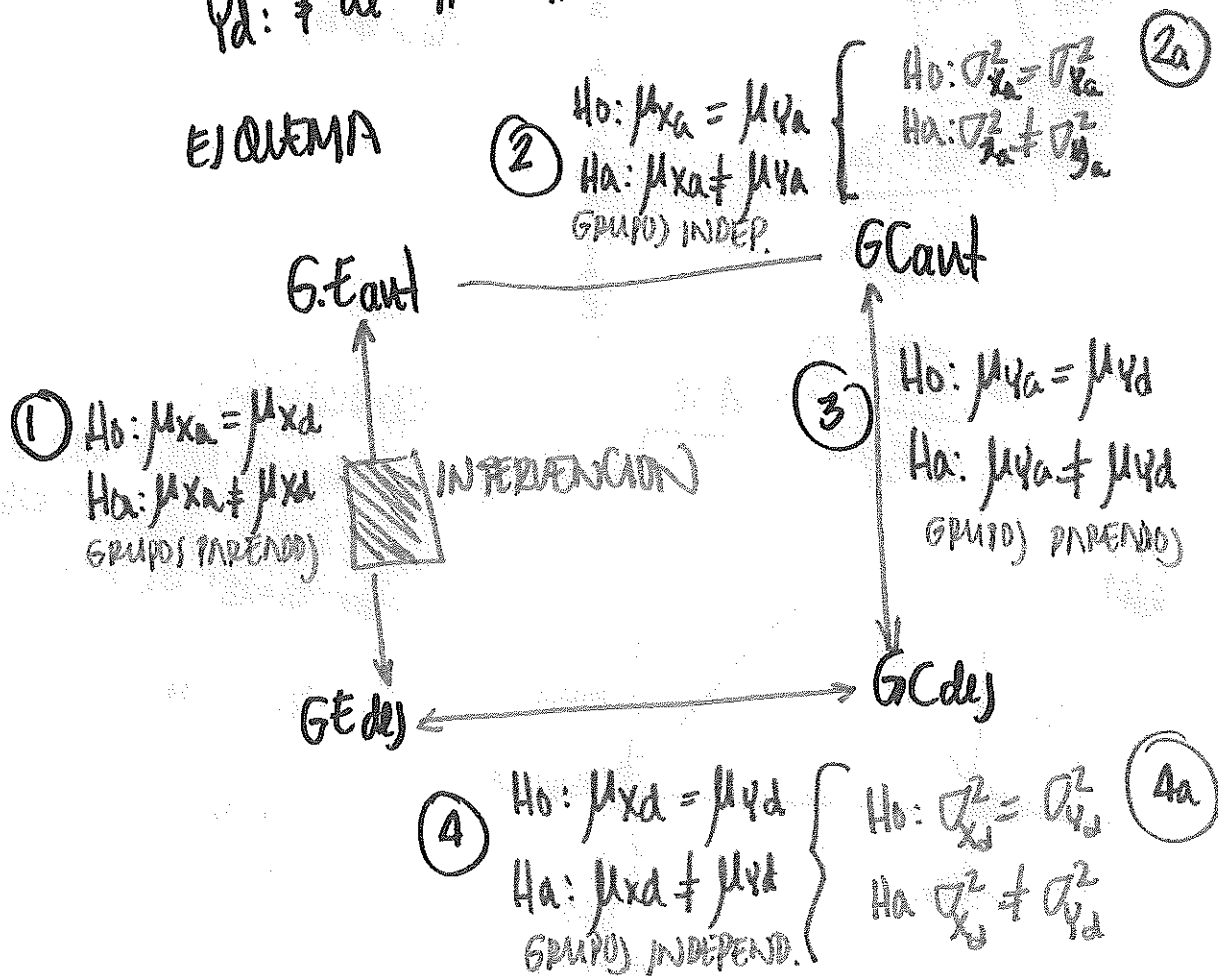 Yd: # de
ESQUEMA
2
Ho: μxa = μya
Ha: μxa ≠ μya
GRUPOS INDEP.
Ho: σ²xa = σ²ya
Ha: σ²xa ≠ σ²ya
2a
G.Eant
GCant
1
Ho: μxa = μxd
Ha: μxa ≠ μxd
GRUPOS PAREADOS
INTERVENCION
3
Ho: μya = μyd
Ha: μya ≠ μyd
GRUPOS PAREADOS
GEdes
GCdes
4
Ho: μxd = μyd
Ha: μxd ≠ μyd
GRUPOS INDEPEND.
Ho: σ²xd = σ²yd
Ha σ²xd ≠ σ²yd
4a